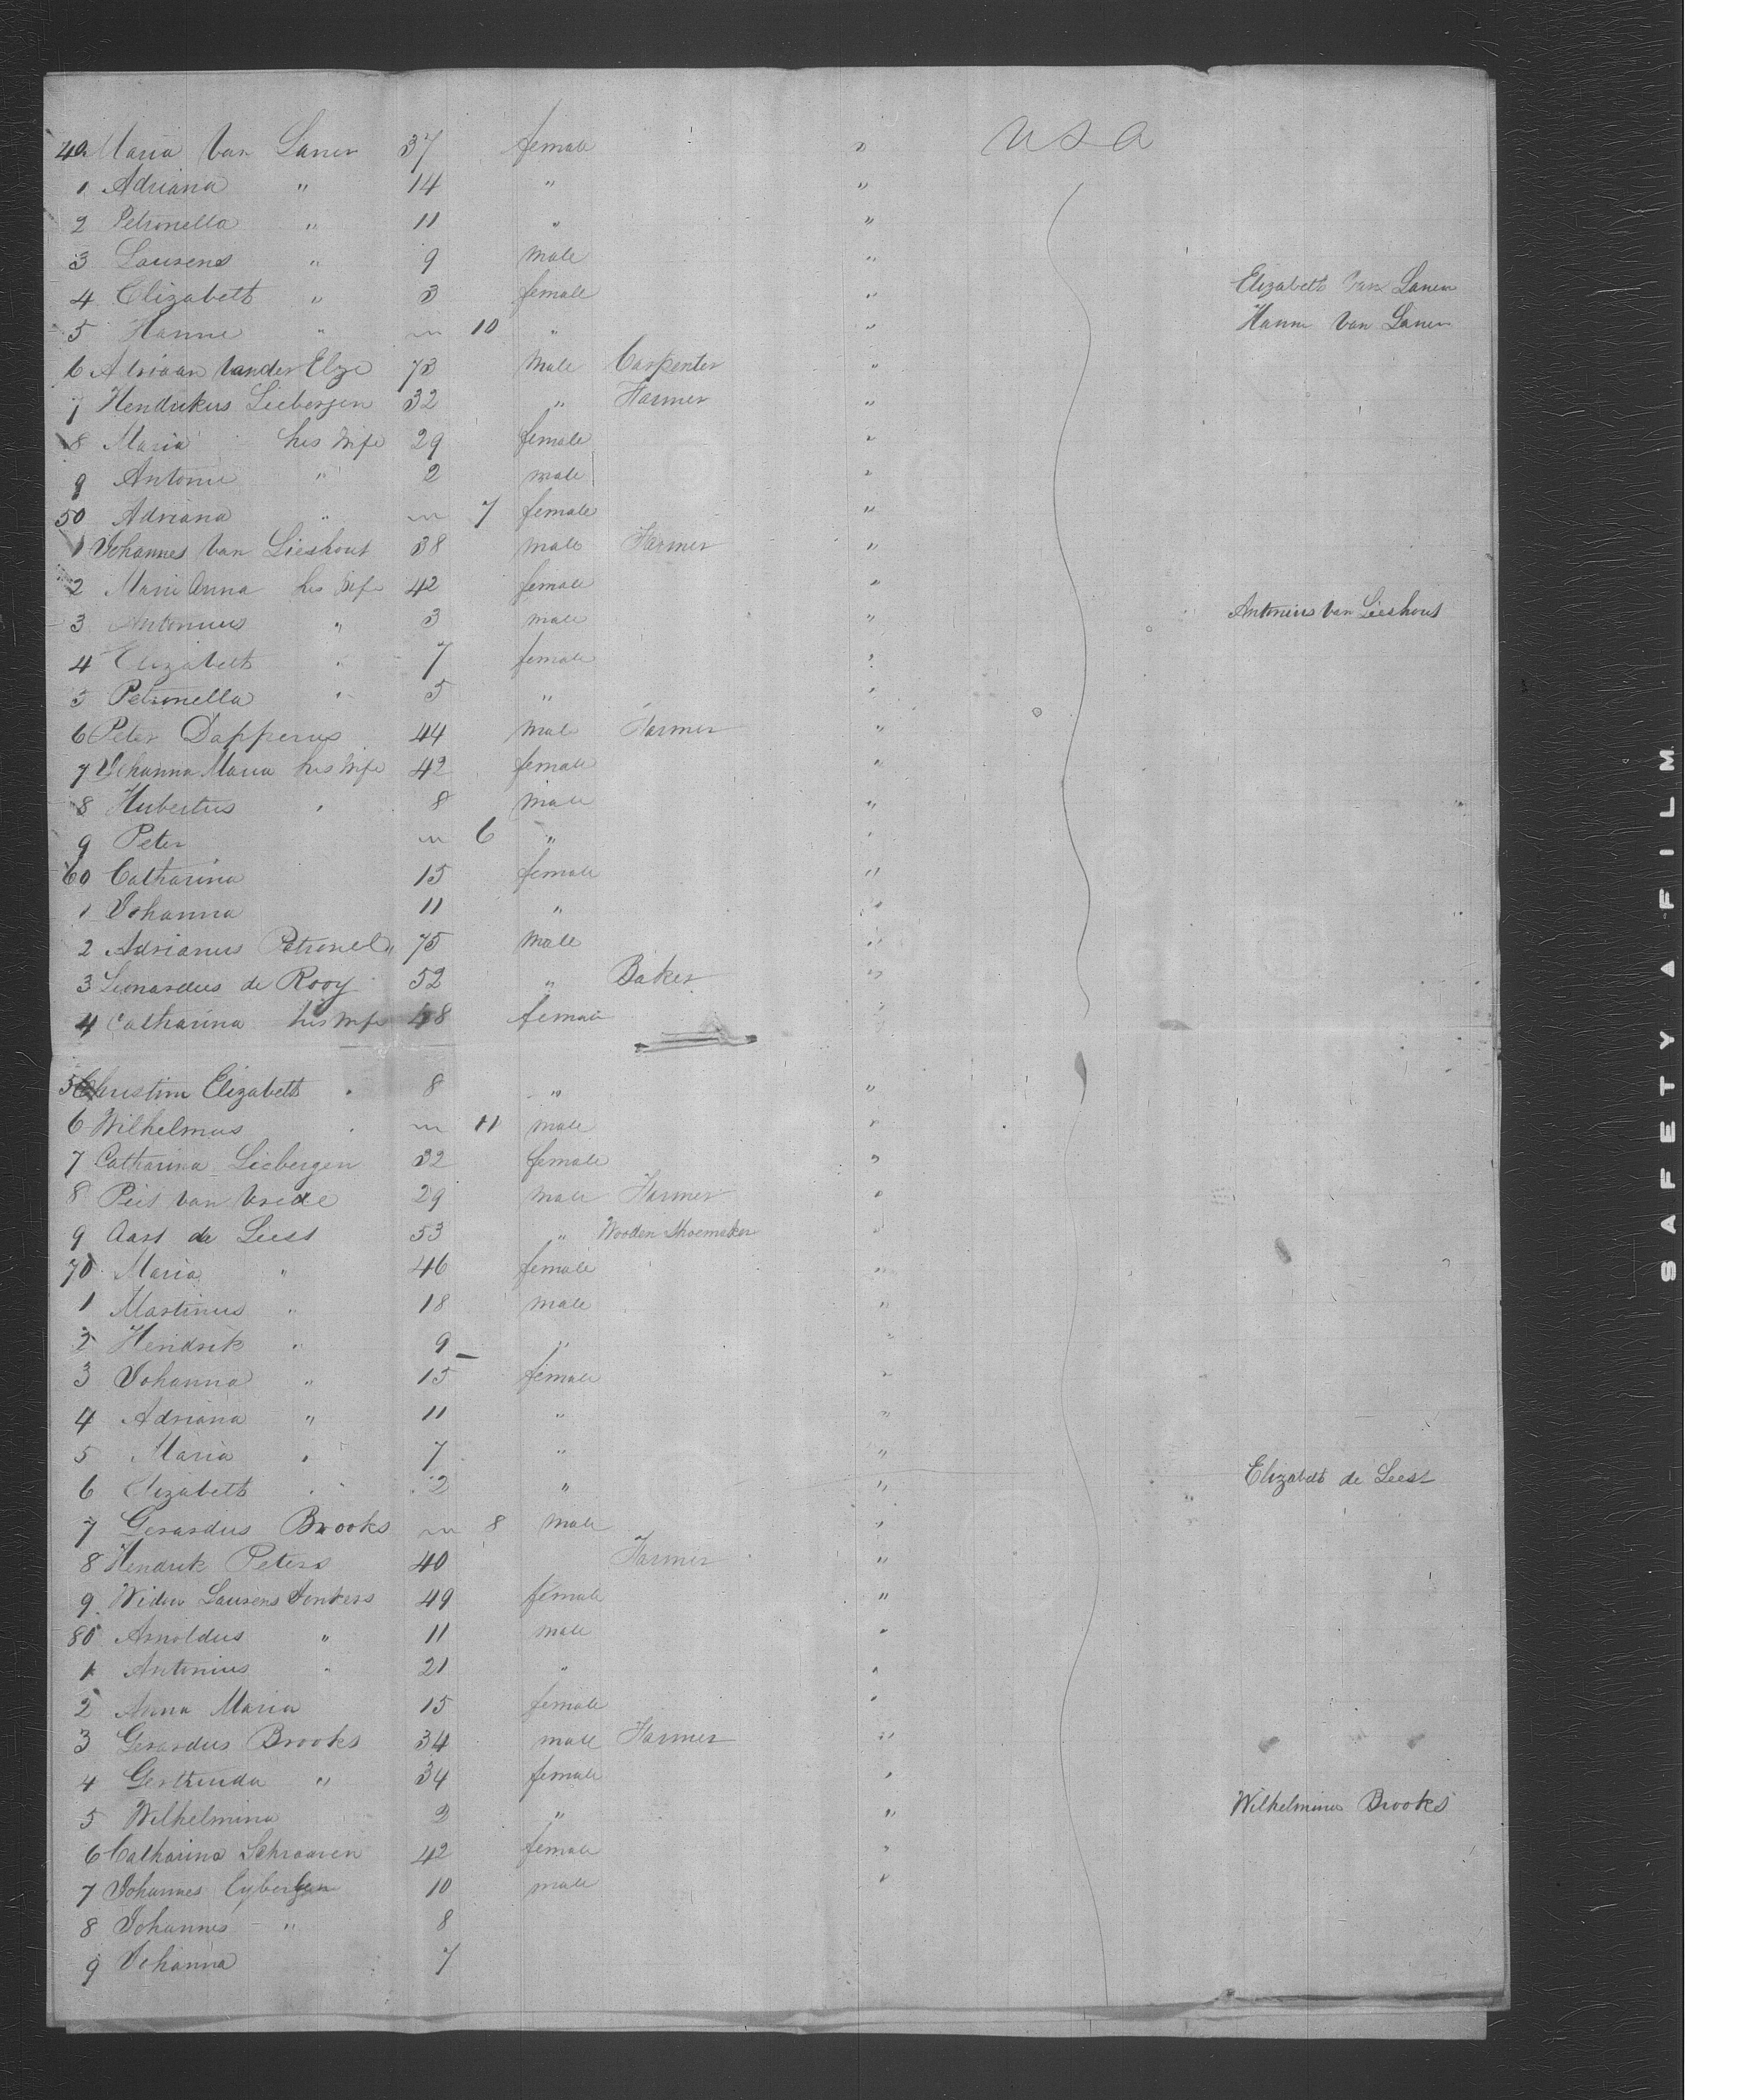 40 Maria Van Lanen 37 female " USA
1 Adriana " 14 " "
2 Petronella " 11 " "
3 Laurens " 9 male "
4 Elizabeth " 3 female " Elizabeth Van Lanen
5 Hanne " " 10 " " Hanne Van Lanen
6 Adriaan Vander Elze 73 male Carpenter "
7 Hendrikus Liebergen 32 " Farmer "
8 Maria his Wife 29 female "
9 Antonie " 2 male "
50 Adriana " " 7 female "
1 Johannes Van Lieshout 38 male Farmer "
2 Maria Anna his Wife 42 female "
3 Antonius " 3 male " Antonius Van Lieshout
4 Elizabeth " 7 female "
5 Petronella " 5 " "
6 Peter Dapperus 44 male Farmer "
7 Johanna Maria his Wife 42 female "
8 Hubertus " 8 male "
9 Peter " 6 " "
60 Catharina 15 female "
1 Johanna 11 " "
2 Adrianus Petronel " 75 male "
3 Leonardus de Rooy 52 " Baker "
4 Catharina his Wife 48 female "
5 Christin Elizabeth " 8 " "
6 Wilhelmus " " 11 male "
7 Catharina Liebergen 32 female "
8 Piet Van Vrede 29 male Farmer "
9 Aart de Leest 53 " Wooden Shoemaker "
70 Maria " 46 female "
1 Martinus " 18 male "
2 Hendrik " 9 " "
3 Johanna " 15 female "
4 Adriana " 11 " "
5 Maria " 7 " "
6 Elizabeth " 2 " " Elizabeth de Leest
7 Gerardus Brooks " 8 male "
8 Hendrik Peters 40 Farmer "
9 Widow Laurens Jonkers 49 female "
80 Arnoldus " 11 male "
1 Antonius " 21 " "
2 Anna Maria 15 female "
3 Gerardus Brooks 34 male Farmer "
4 Gertruida " 34 female "
5 Wilhelmina 3 " " Wilhelmina Brooks
6 Catharina Schraaven 42 female "
7 Johannes Eybergen 10 male "
8 Johannes " 8
9 Johanna 7
SAFETY A FILM